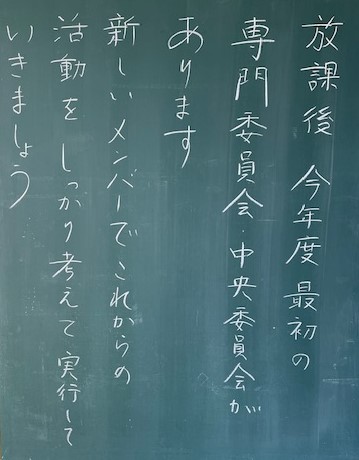 放課後 今年度最初の
専門委員会・中央委員会が
あります
新しいメンバーでこれからの
活動を しっかり考えて実行して
いきましょう